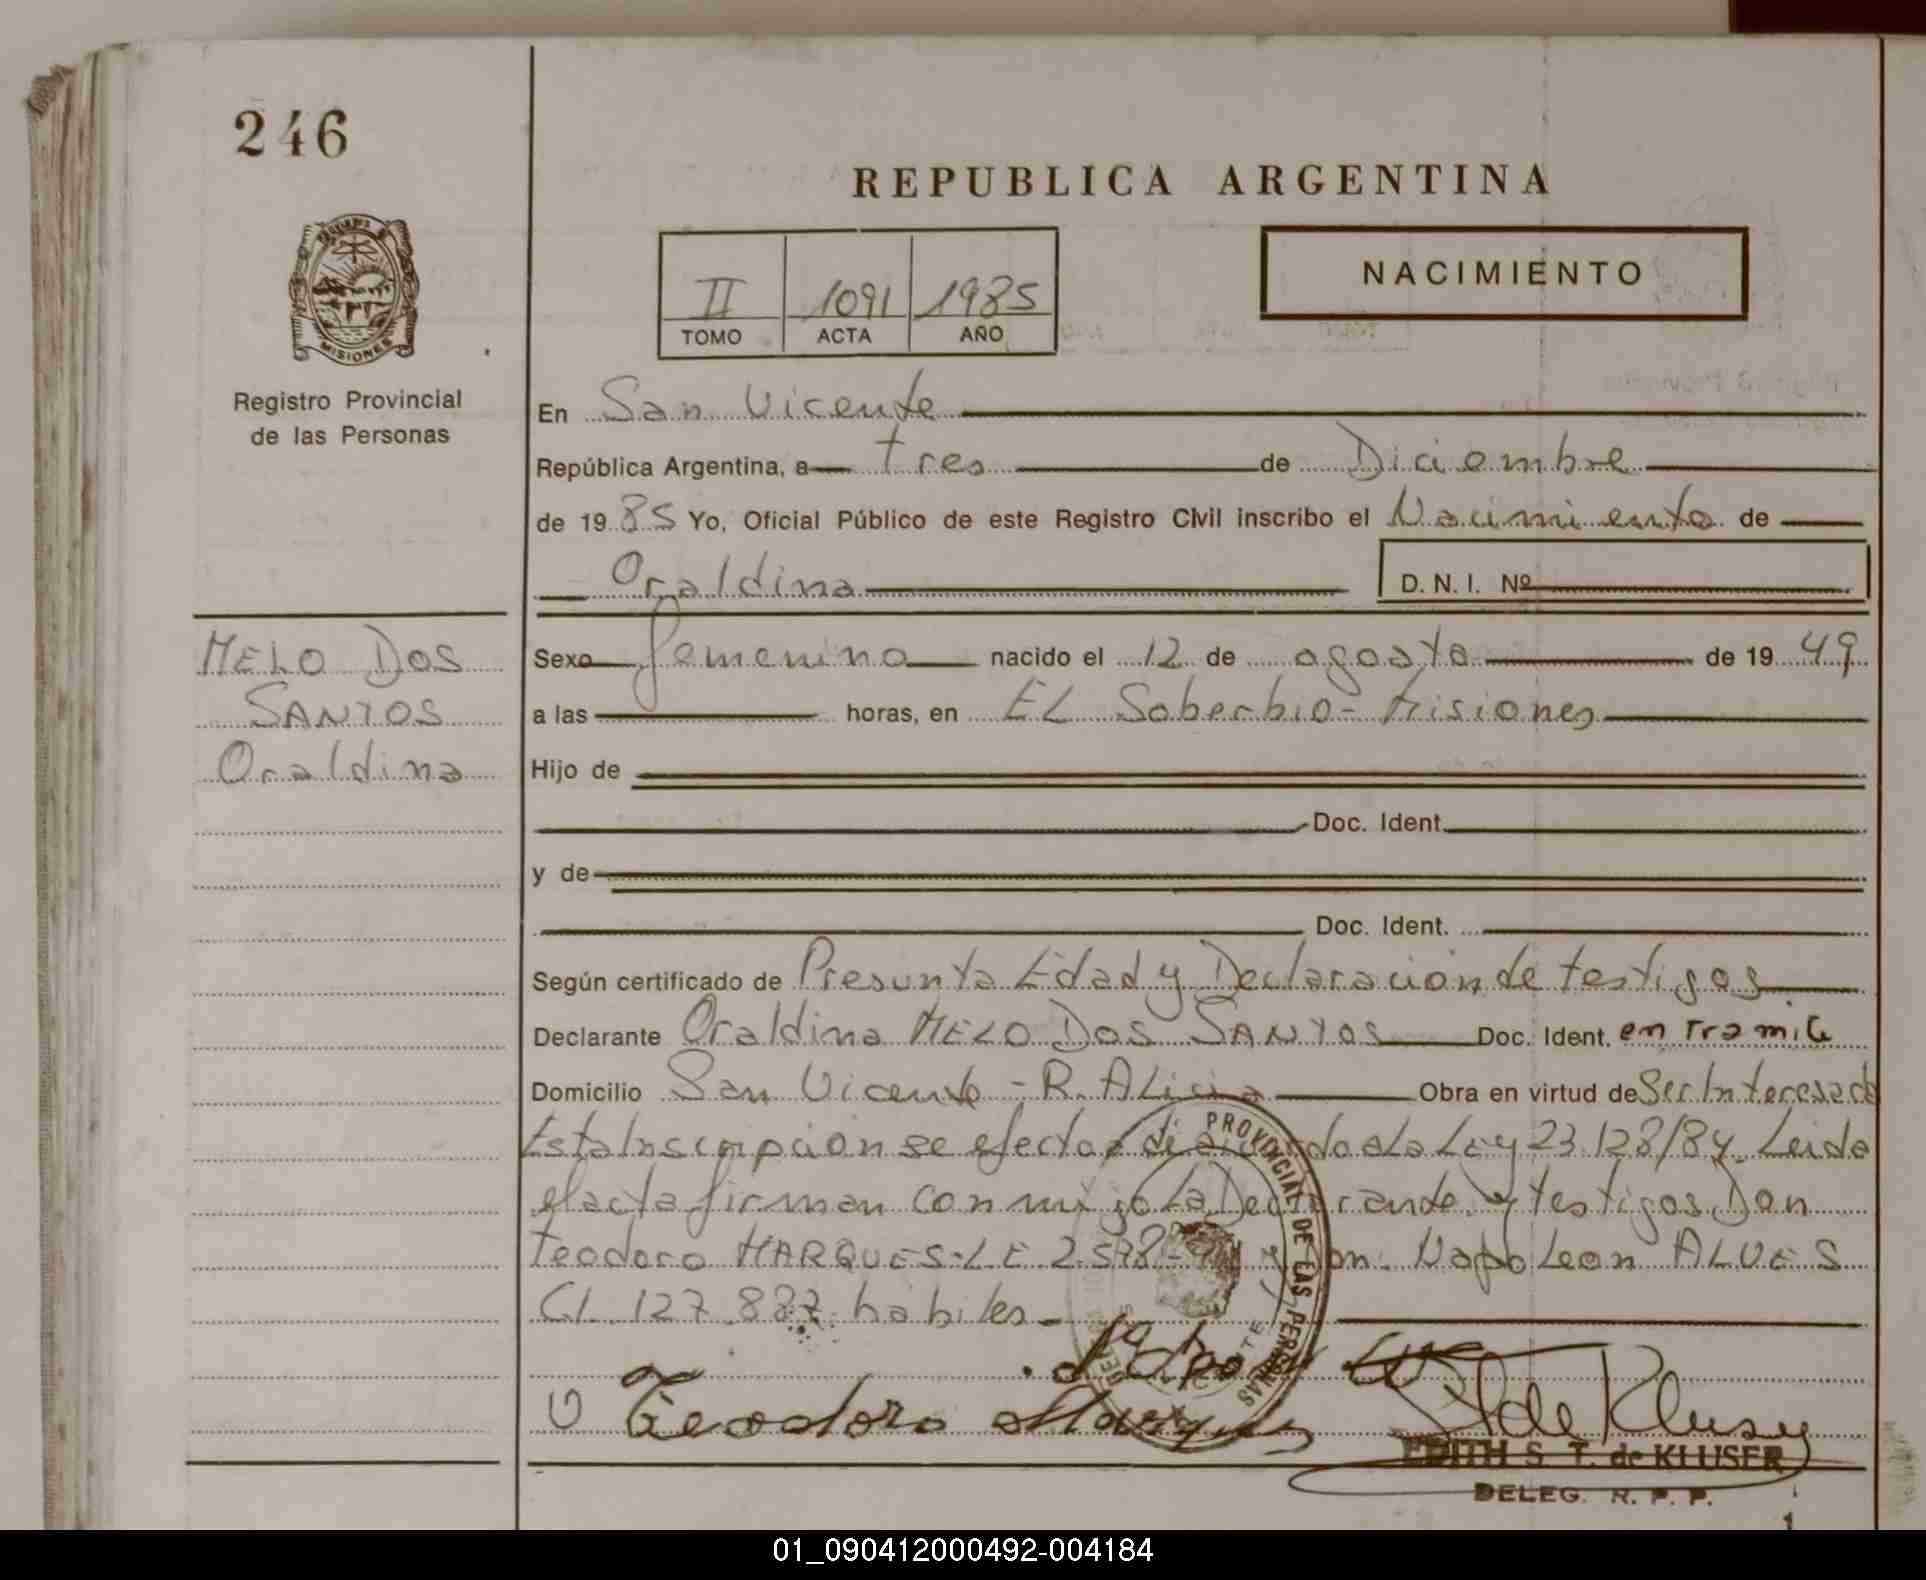 246
REPUBLICA ARGENTINA
MISIONES
Registro Provincial
de las Personas
II 1091 1985
TOMO ACTA AÑO
NACIMIENTO
En San Vicente
República Argentina, a tres de Diciembre
de 1985 Yo, Oficial Público de este Registro Civil inscribo el Nacimiento de
Oraldina D. N. I. Nº
MELO DOS
SANTOS
Oraldina
Sexo femenino nacido el 12 de agosto de 1949
a las horas, en EL Soberbio - Misiones
Hijo de
Doc. Ident.
y de
Doc. Ident.
Según certificado de Presunta Edad y Declaración de testigos
Declarante Oraldina MELO DOS SANTOS Doc. Ident. en Tramite
Domicilio San Vicente - R. ALicia Obra en virtud de Ser Interesada
Esta Inscripción se efectua de acuerdo a La Ley 23.128/84. Leida
el acta firman conmigo La Declarante y testigos Don
Teodoro MARQUES-LE 2.598- Don: Napoleon ALVES
CI. 127.887 habiles -
PROVINCIAL DE LAS PERSONAS
Teodoro Marques
de Kluser
EDITH S. T. de KLUSER
DELEG. R. P. P.
1
01_090412000492-004184